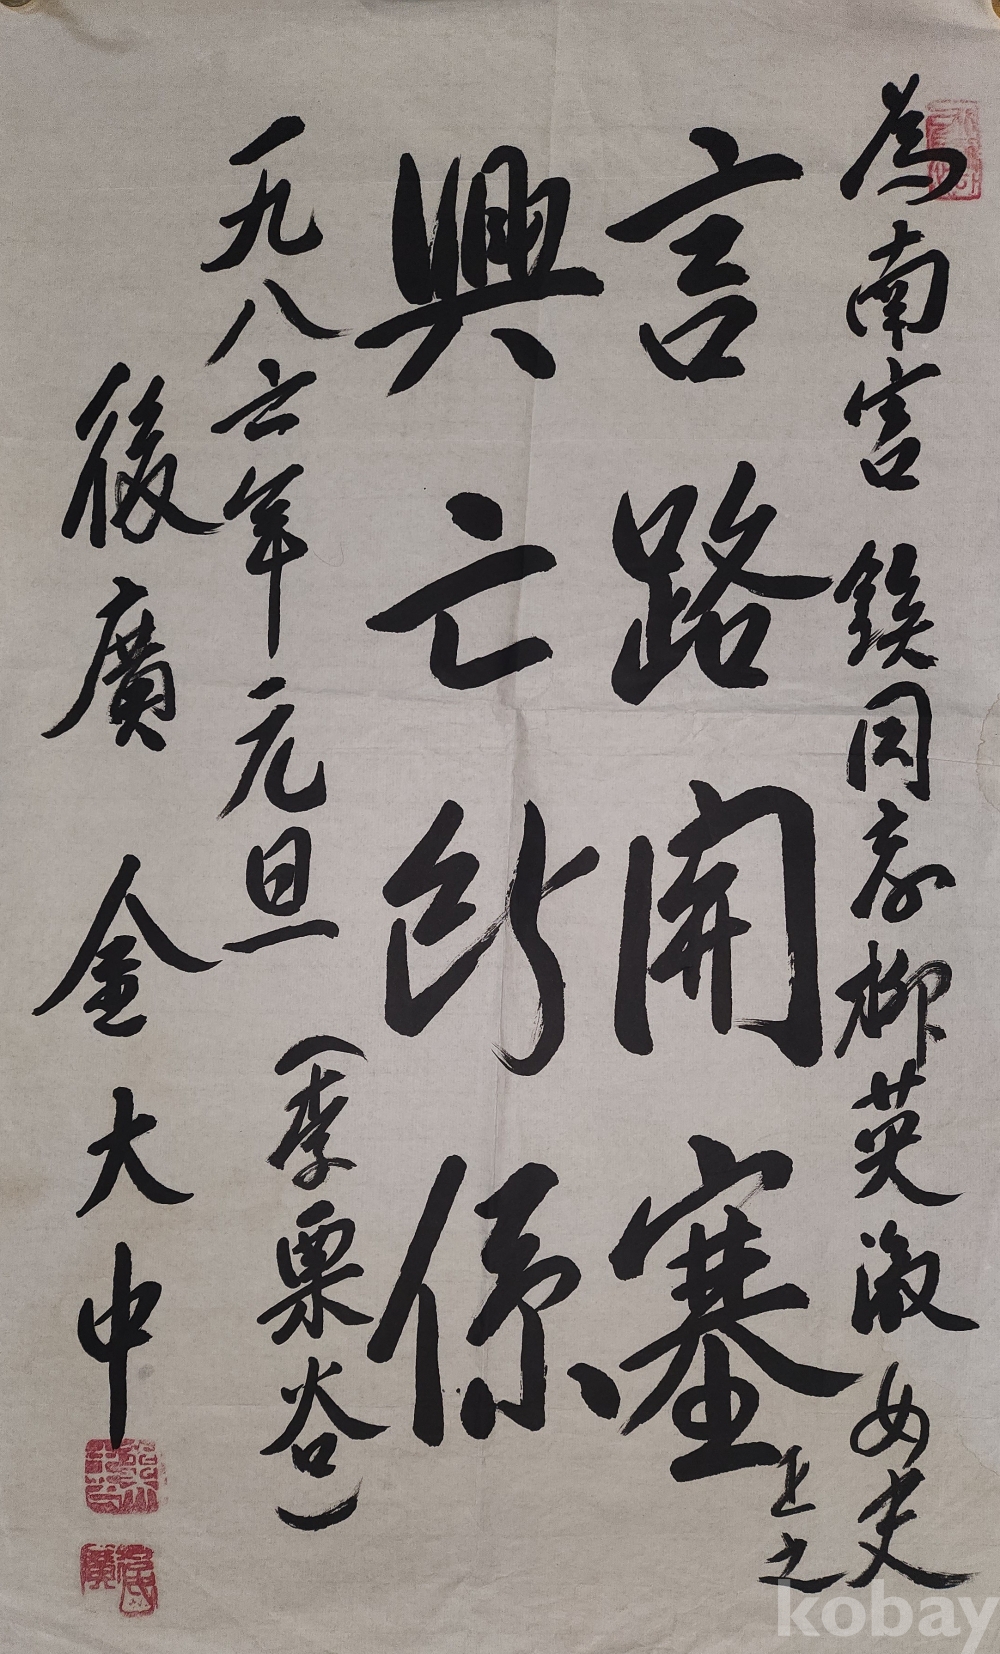 為南宮鎮同志柳英淑女史
正之
言路開塞
興亡所係
一九八六年元旦
(李栗谷)
後廣 金大中
後廣
kobay